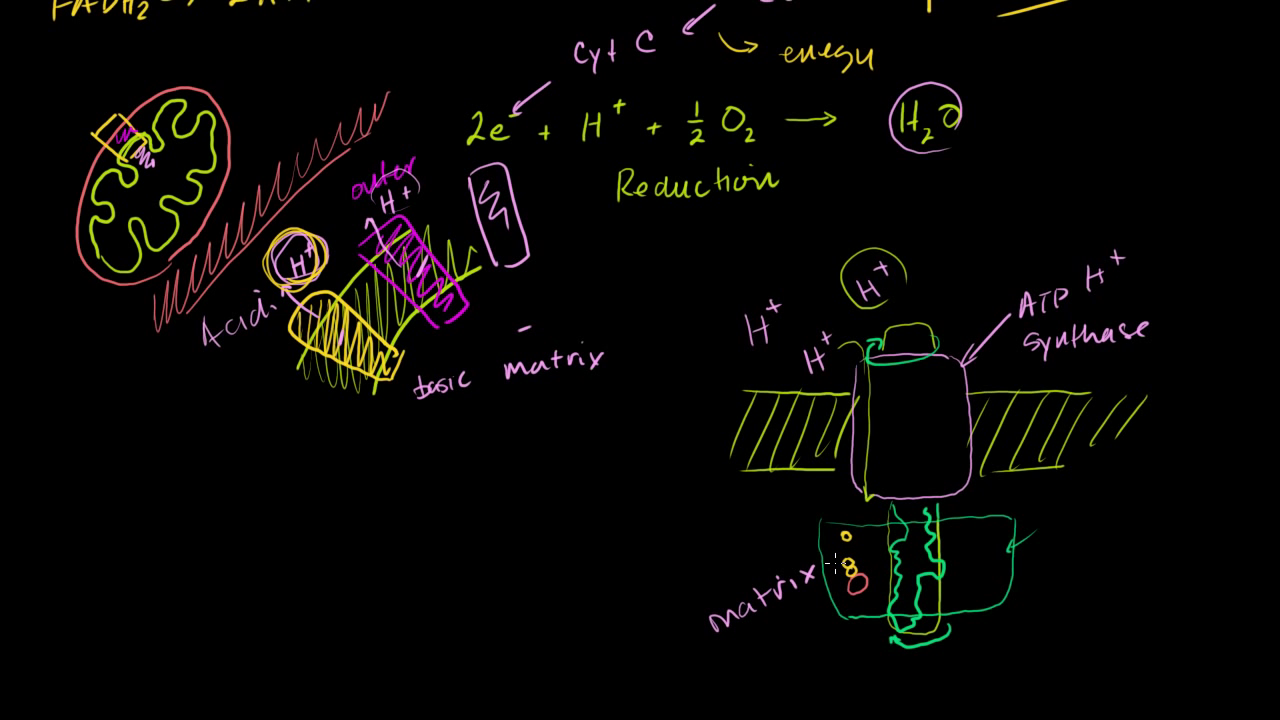 FADH₂
Cyt C
energy
2e⁻ + H⁺ + ½ O₂ → H₂O
Reduction
outer
H⁺
H⁺
Acid
basic matrix
H⁺
H⁺
H⁺
ATP H⁺
synthase
matrix